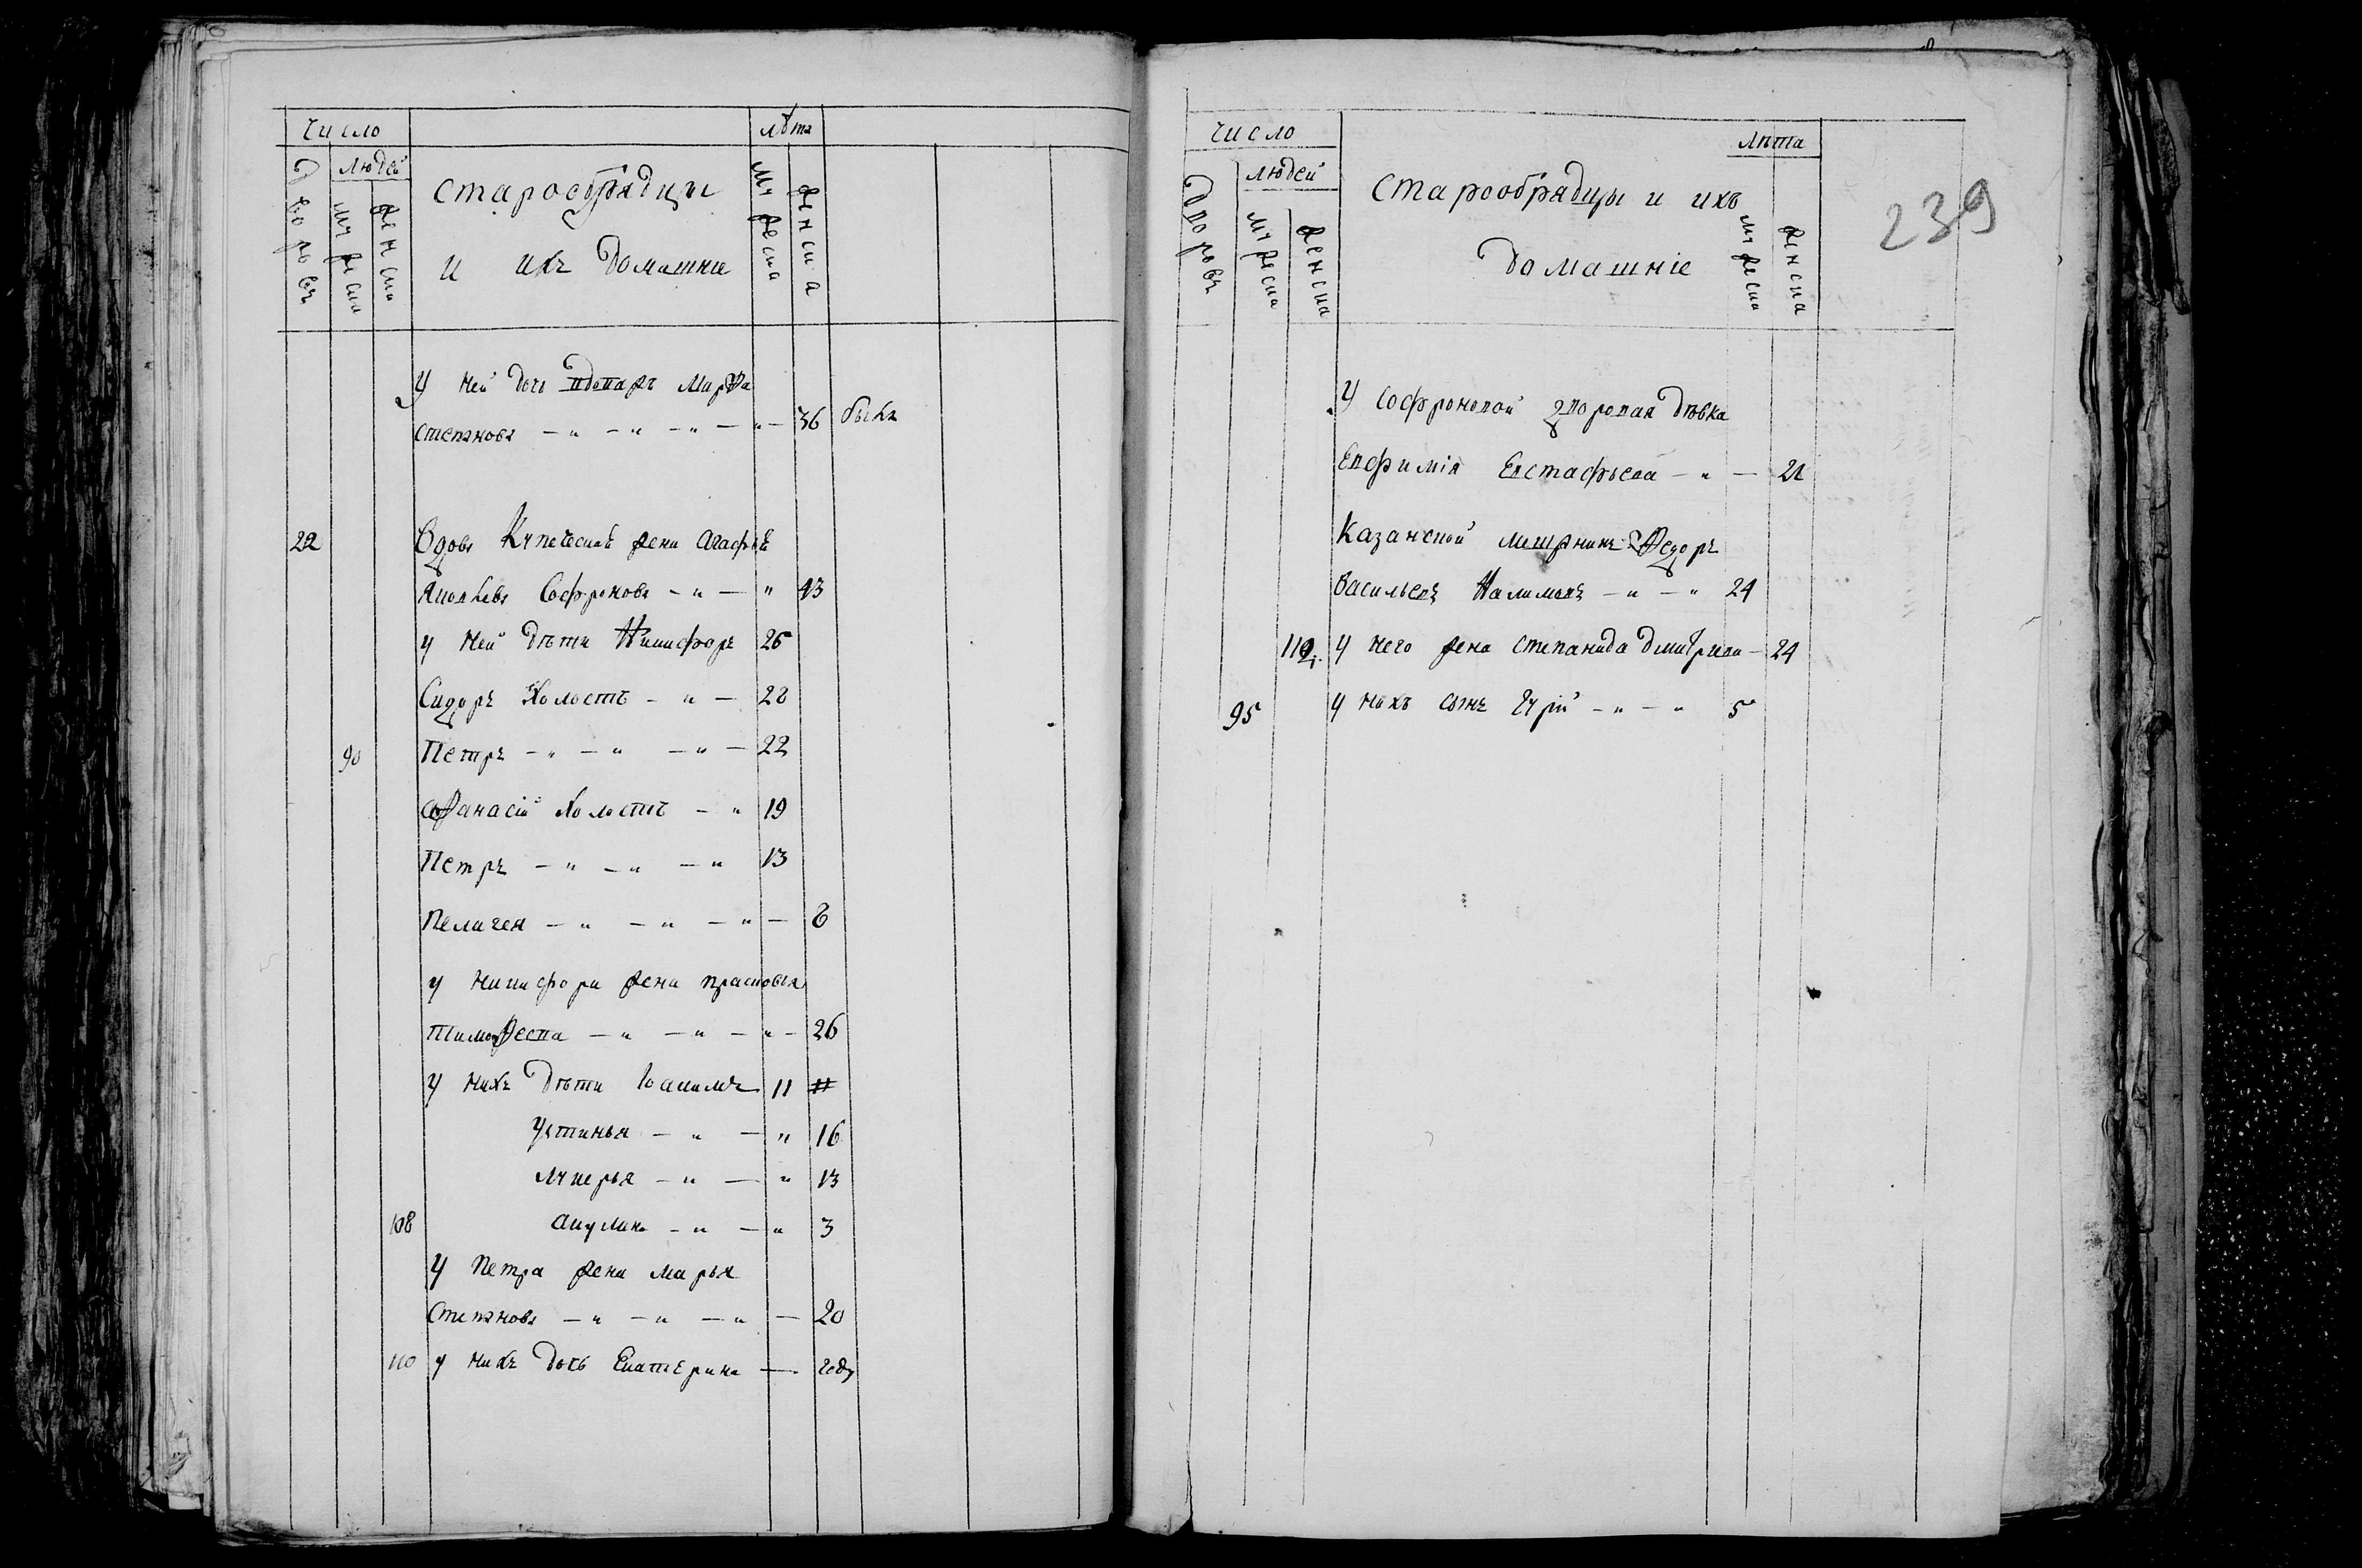 Число
Лѣта
Дворовъ
Людей
Мужеска
Женска
Старообрядцы
и ихъ домашнiе
Мужеска
Женска
У ней дочь вдова Марѳа
Степанова — „ — „ — „ — „ — 36
22 Вдова Купеческой жены Агафья
Яковлева Софронова — „ — „ 43
у ней дѣти Никифоръ 26
Сидоръ Холостъ — „ — 28
90 Петръ — „ — „ — „ — 22
Аѳанасiй Холостъ — „ 19
Петръ — „ — „ — „ 13
Пелагея — „ — „ — „ — 6
у Никифора жена Прасковья
Тимоѳеева — „ — „ — „ — 26
у нихъ дѣти Iоакимъ 11
Устинья — „ — „ 16
Лукерья — „ — „ 13
108 Акулина — „ — „ 3
У Петра жена Марья
Степанова — „ — „ — „ — 20
110 у нихъ дочь Екатерина — году
Число
Лѣта
239
Дворовъ
Людей
Мужеска
Женска
Старообрядцы и ихъ
Домашнiе
Мужеска
Женска
У Софроновой дворовая дѣвка
Евфимiя Евстафьева — „ — 21
Казанской мещанинъ Ѳедоръ
Васильевъ — „ — „ 24
112. У него жена Степанида Дмитриева — 24
95 У нихъ сынъ Гурiй — „ — „ 5